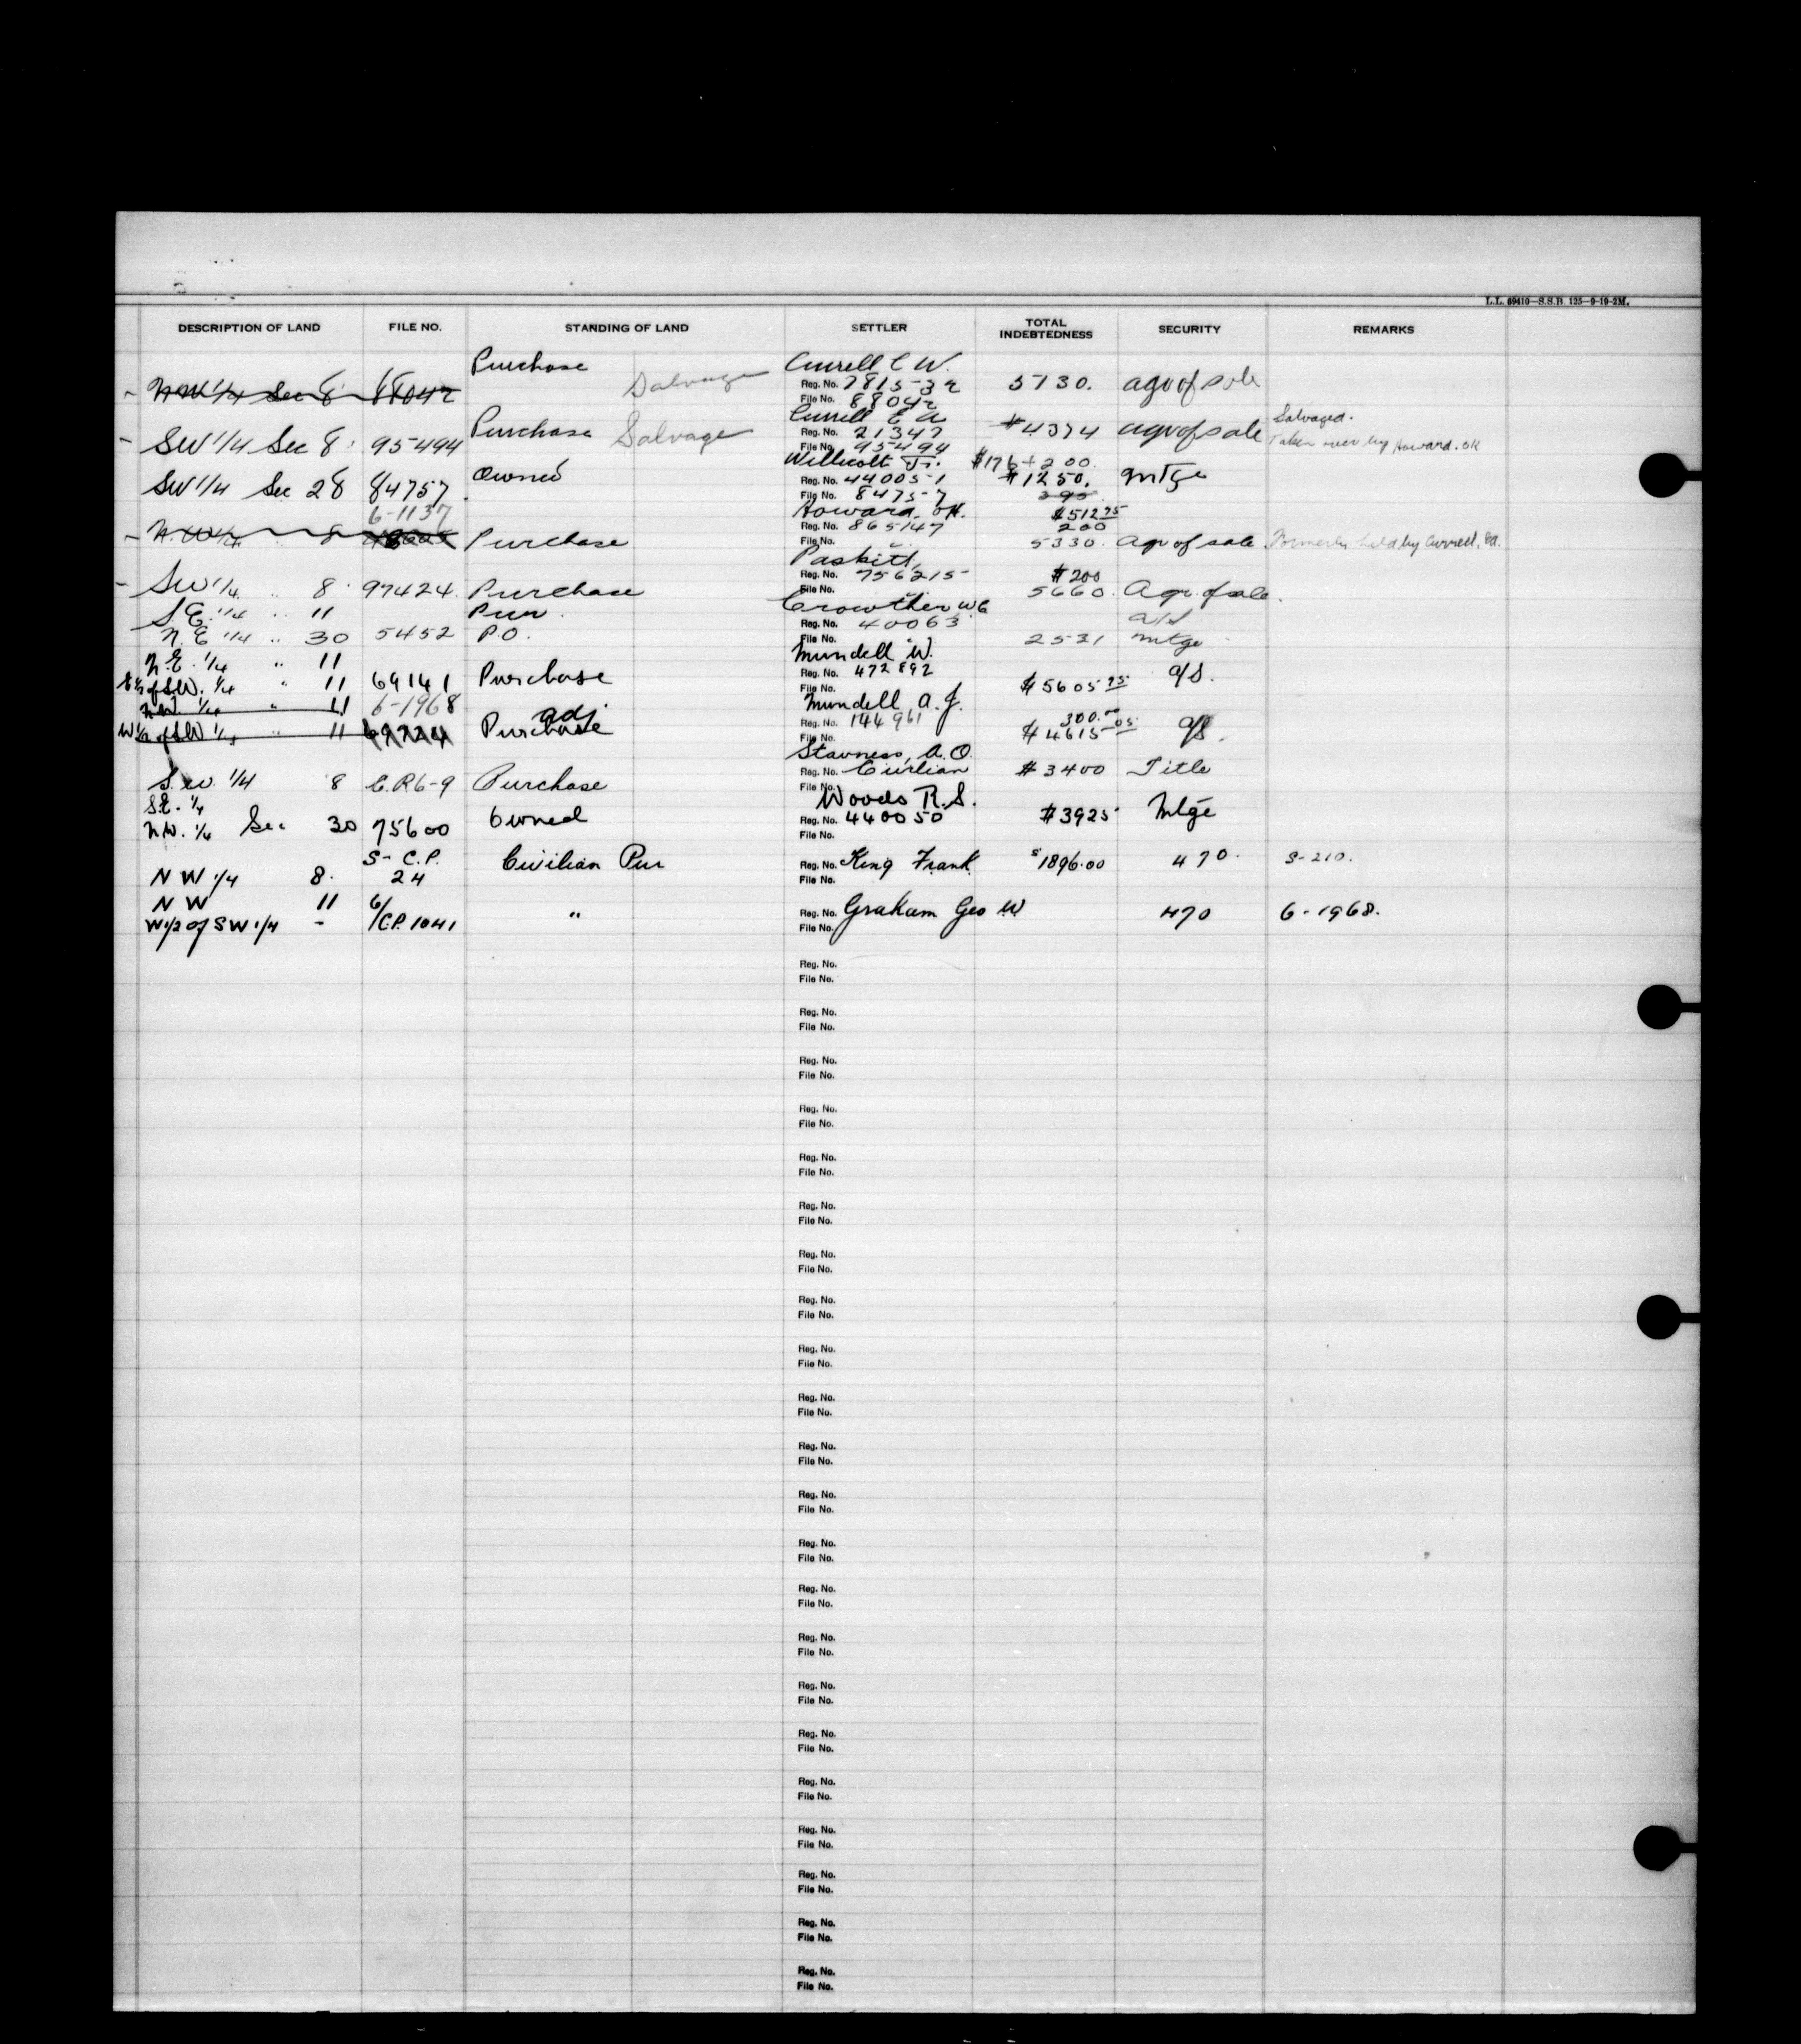 L.L. 69410—S.S.B. 125—9-19-2M.
DESCRIPTION OF LAND FILE NO. STANDING OF LAND SETTLER TOTAL INDEBTEDNESS SECURITY REMARKS
Purchase Currell C W.
- N.W 1/4 Sec 8 88042 Salvage Reg. No. 7815-32 5730. agr of sale
File No. 88042
Purchase Salvage Currell E A Salvaged.
- SW 1/4 Sec 8 95494 Reg. No. 21347 #4374 agr of sale Taken over by Howard. OH
File No. 95494
Owned Willicott Jr. $176 + 200.
SW 1/4 Sec 28 84757 Reg. No. 44005-1 #1250. mtge
File No. 8475-7 395
6-1137 Howard. OH. $512 75
- N.W 1/4 " 8 Purchase Reg. No. 865147 200
File No. 5330. agr of sale Formerly held by Currell, EA.
Paskitt,
- SW 1/4 " 8 97424 Purchase Reg. No. 756215 #200
File No. 5660. Agr. of sale.
S.E. 1/4 " 11 Pur. Crowther WG a/s
N.E 1/4 " 30 5452 P.O. Reg. No. 40063
File No. 2531 mtge
N.E. 1/4 " 11 Mundell W.
E 1/2 of S.W. 1/4 " 11 69141 Purchase Reg. No. 472892 a/s.
File No. $5605 75
N.W. 1/4 " 11 6-1968 adj. Mundell A. J. 300.00
W 1/2 of S.W 1/4 " 11 69724 Purchase Reg. No. 144961 $4615 05 a/s.
File No.
Stavness, A. O.
S.W. 1/4 8 C.R 6-9 Purchase Reg. No. Civilian #3400 Title
File No.
S.E. 1/4 Woods R. S.
N.W. 1/4 Sec 30 75600 Owned Reg. No. 440050 #3925 Mtge
File No.
S- C.P.
N W 1/4 8. 24 Civilian Pur Reg. No. King Frank $1896.00 470. S-210.
File No.
N W 11 6/
W 1/2 of S W 1/4 - /CP. 1041 " Reg. No. Graham Geo W 470 6-1968.
File No.
Reg. No.
File No.
Reg. No.
File No.
Reg. No.
File No.
Reg. No.
File No.
Reg. No.
File No.
Reg. No.
File No.
Reg. No.
File No.
Reg. No.
File No.
Reg. No.
File No.
Reg. No.
File No.
Reg. No.
File No.
Reg. No.
File No.
Reg. No.
File No.
Reg. No.
File No.
Reg. No.
File No.
Reg. No.
File No.
Reg. No.
File No.
Reg. No.
File No.
Reg. No.
File No.
Reg. No.
File No.
Reg. No.
File No.
Reg. No.
File No.